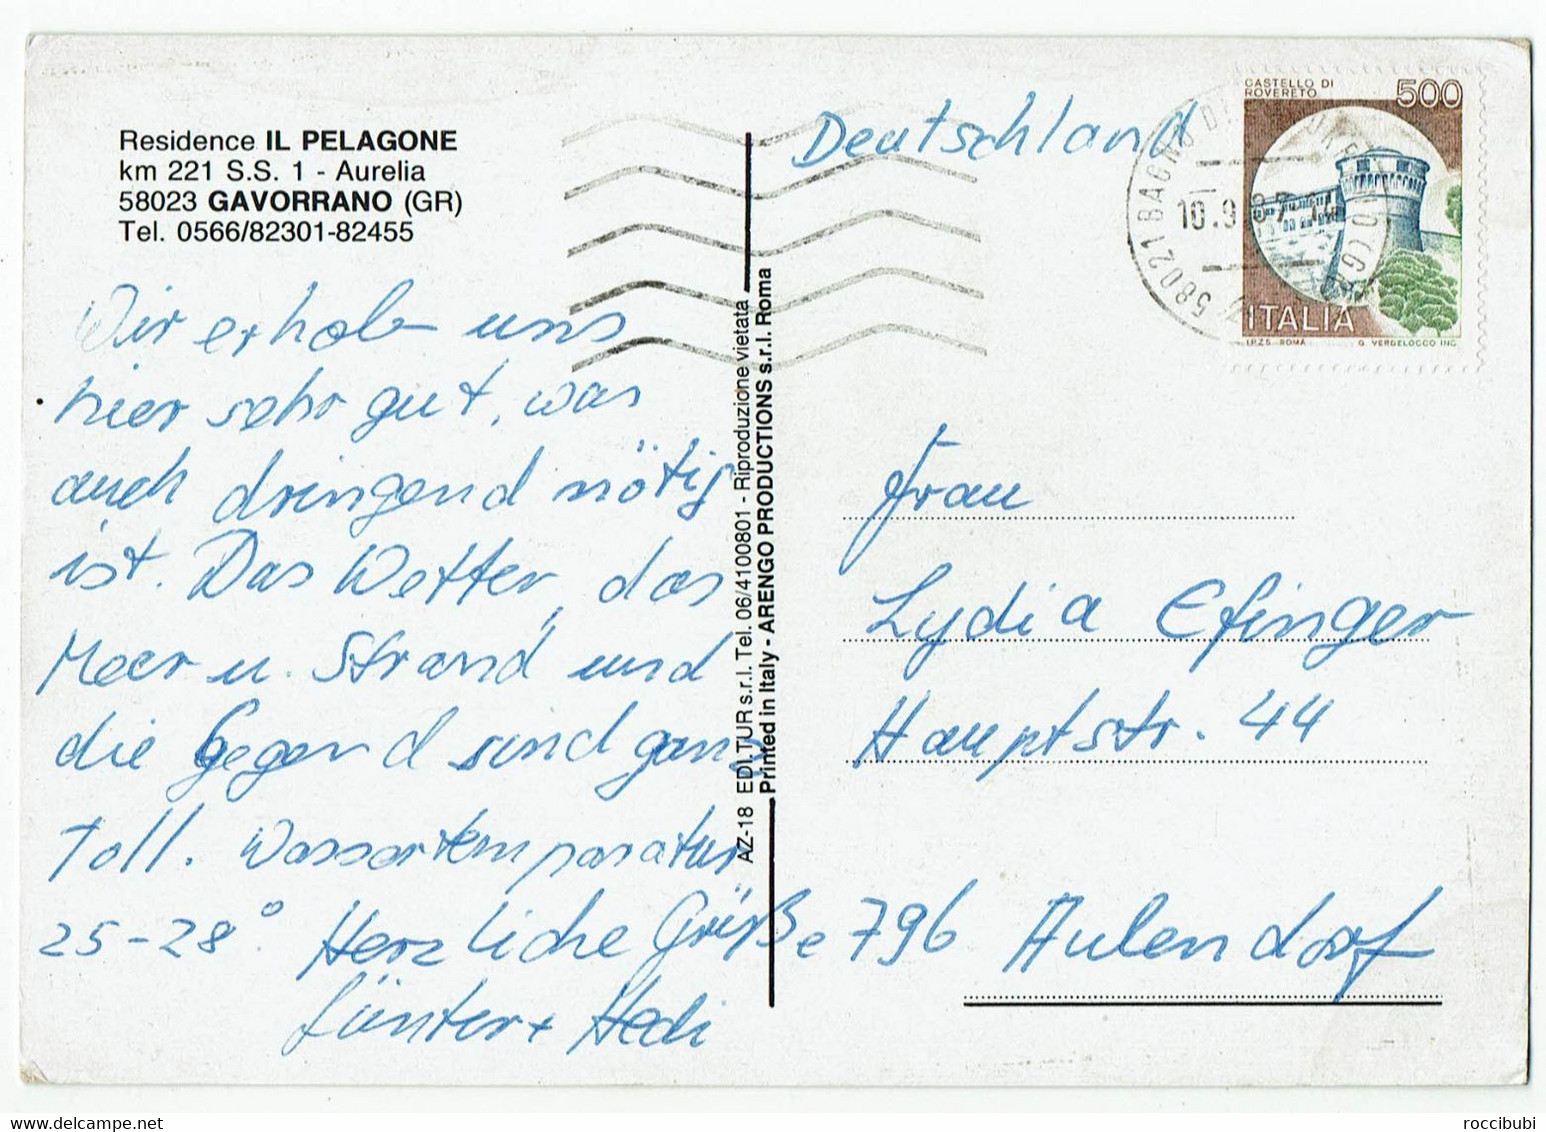 Residence IL PELAGONE
km 221 S.S. 1 - Aurelia
58023 GAVORRANO (GR)
Tel. 0566/82301-82455
Wir erholen uns
hier sehr gut, was
auch dringend nötig
ist. Das Wetter, das
Meer u. Strand und
die Gegend sind ganz
toll. Wassertemperatur
25-28°. Herzliche Grüße
Günter + Hedi
AZ-18 EDI.TUR s.r.l. Tel. 06/4100801 - Riproduzione vietata
Printed in Italy - ARENGO PRODUCTIONS s.r.l. Roma
Deutschland
CASTELLO DI
ROVERETO
500
ITALIA
I.P.Z.S. ROMA G. VERDELOCCO INC.
58021 BAGNO DI
10.9.87
(GR)
Frau
Lydia Efinger
Hauptstr. 44
796 Aulendorf
roccibubi